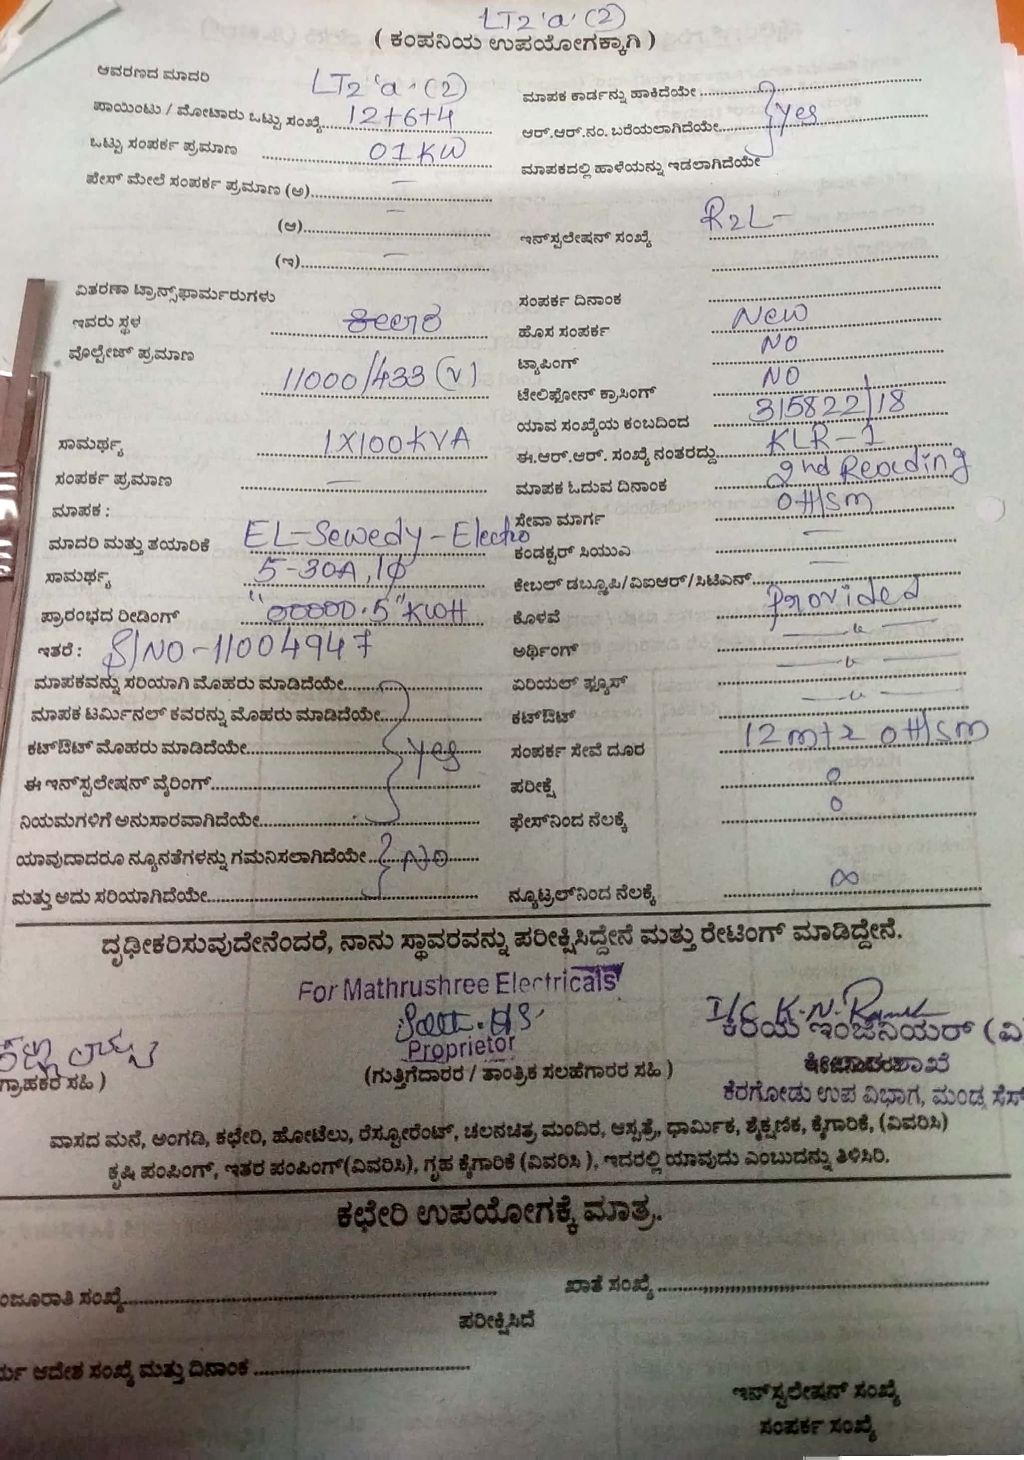 LT2 'a' (2)
( ಕಂಪನಿಯ ಉಪಯೋಗಕ್ಕಾಗಿ )
ಆವರಣದ ಮಾದರಿ LT2 'a' (2)
ಪಾಯಿಂಟು / ಮೋಟಾರು ಒಟ್ಟು ಸಂಖ್ಯೆ 12+6+4
ಒಟ್ಟು ಸಂಪರ್ಕ ಪ್ರಮಾಣ 01KW
ಪೇಸ್ ಮೇಲೆ ಸಂಪರ್ಕ ಪ್ರಮಾಣ (ಅ) —
(ಆ) —
(ಇ) —
ಮಾಪಕ ಕಾರ್ಡನ್ನು ಹಾಕಿದೆಯೇ
ಆರ್.ಆರ್.ನಂ. ಬರೆಯಲಾಗಿದೆಯೇ yes
ಮಾಪಕದಲ್ಲಿ ಹಾಳೆಯನ್ನು ಇಡಲಾಗಿದೆಯೇ
ಇನ್‌ಸ್ಟಲೇಷನ್ ಸಂಖ್ಯೆ R2L-
ವಿತರಣಾ ಟ್ರಾನ್ಸ್‌ಫಾರ್ಮರುಗಳು
ಇವರು ಸ್ಥಳ
ವೊಲ್ಟೇಜ್ ಪ್ರಮಾಣ 11000/433 (V)
ಸಾಮರ್ಥ್ಯ 1X100KVA
ಸಂಪರ್ಕ ಪ್ರಮಾಣ —
ಮಾಪಕ :
ಮಾದರಿ ಮತ್ತು ತಯಾರಿಕೆ EL-Sewedy-Electro
ಸಾಮರ್ಥ್ಯ 5-30A, 1ϕ
ಪ್ರಾರಂಭದ ರೀಡಿಂಗ್ "00000.5" KWH
ಇತರೆ : S/NO-11004947
ಮಾಪಕವನ್ನು ಸರಿಯಾಗಿ ಮೊಹರು ಮಾಡಿದೆಯೇ
ಮಾಪಕ ಟರ್ಮಿನಲ್ ಕವರನ್ನು ಮೊಹರು ಮಾಡಿದೆಯೇ
ಕಟ್‌ಔಟ್ ಮೊಹರು ಮಾಡಿದೆಯೇ yes
ಈ ಇನ್‌ಸ್ಟಲೇಷನ್ ವೈರಿಂಗ್
ನಿಯಮಗಳಿಗೆ ಅನುಸಾರವಾಗಿದೆಯೇ
ಯಾವುದಾದರೂ ನ್ಯೂನತೆಗಳನ್ನು ಗಮನಿಸಲಾಗಿದೆಯೇ NO
ಮತ್ತು ಅದು ಸರಿಯಾಗಿದೆಯೇ
ಸಂಪರ್ಕ ದಿನಾಂಕ
ಹೊಸ ಸಂಪರ್ಕ New
ಟ್ಯಾಪಿಂಗ್ NO
ಟೇಲಿಫೋನ್ ಕ್ರಾಸಿಂಗ್ NO
ಯಾವ ಸಂಖ್ಯೆಯ ಕಂಬದಿಂದ 315822/18
ಈ.ಆರ್.ಆರ್. ಸಂಖ್ಯೆ ನಂತರದ್ದು KLR-1
ಮಾಪಕ ಓದುವ ದಿನಾಂಕ 2nd Reading
ಸೇವಾ ಮಾರ್ಗ OH/sm
ಕಂಡಕ್ಟರ್ ಸಿಯುಎ —
ಕೇಬಲ್ ಡಬ್ಲೂಪಿ/ವಿಐಆರ್/ಸಿಟಿಎನ್ —
ಕೊಳವೆ Provided
ಅರ್ಥಿಂಗ್ — " —
ಏರಿಯಲ್ ಫ್ಯೂಸ್ — " —
ಕಟ್‌ಔಟ್ — " —
ಸಂಪರ್ಕ ಸೇವೆ ದೂರ 12 mtr OH/sm
ಪರೀಕ್ಷೆ 0
ಫೇಸ್‌ನಿಂದ ನೆಲಕ್ಕೆ 0
ನ್ಯೂಟ್ರಲ್‌ನಿಂದ ನೆಲಕ್ಕೆ ∞
ದೃಢೀಕರಿಸುವುದೇನೆಂದರೆ, ನಾನು ಸ್ಥಾವರವನ್ನು ಪರೀಕ್ಷಿಸಿದ್ದೇನೆ ಮತ್ತು ರೇಟಿಂಗ್ ಮಾಡಿದ್ದೇನೆ.
For Mathrushree Electricals
Proprietor
ಗ್ರಾಹಕರ ಸಹಿ )
(ಗುತ್ತಿಗೆದಾರರ / ತಾಂತ್ರಿಕ ಸಲಹೆಗಾರರ ಸಹಿ )
I/C K.N.
ಕಿರಿಯ ಇಂಜಿನಿಯರ್ (ವಿ
ಶಾಖೆ
ಕೆರಗೋಡು ಉಪ ವಿಭಾಗ, ಮಂಡ್ಯ ಸೆಸ್
ವಾಸದ ಮನೆ, ಅಂಗಡಿ, ಕಛೇರಿ, ಹೋಟೆಲು, ರೆಸ್ಟೋರೆಂಟ್, ಚಲನಚಿತ್ರ ಮಂದಿರ, ಆಸ್ಪತ್ರೆ, ಧಾರ್ಮಿಕ, ಶೈಕ್ಷಣಿಕ, ಕೈಗಾರಿಕೆ, (ವಿವರಿಸಿ)
ಕೃಷಿ ಪಂಪಿಂಗ್, ಇತರ ಪಂಪಿಂಗ್(ವಿವರಿಸಿ), ಗೃಹ ಕೈಗಾರಿಕೆ (ವಿವರಿಸಿ ), ಇದರಲ್ಲಿ ಯಾವುದು ಎಂಬುದನ್ನು ತಿಳಿಸಿರಿ.
ಕಛೇರಿ ಉಪಯೋಗಕ್ಕೆ ಮಾತ್ರ.
ಂಜೂರಾತಿ ಸಂಖ್ಯೆ
ಖಾತೆ ಸಂಖ್ಯೆ
ಪರೀಕ್ಷಿಸಿದೆ
ರ್ಯ ಆದೇಶ ಸಂಖ್ಯೆ ಮತ್ತು ದಿನಾಂಕ
ಇನ್‌ಸ್ಟಲೇಷನ್ ಸಂಖ್ಯೆ
ಸಂಪರ್ಕ ಸಂಖ್ಯೆ